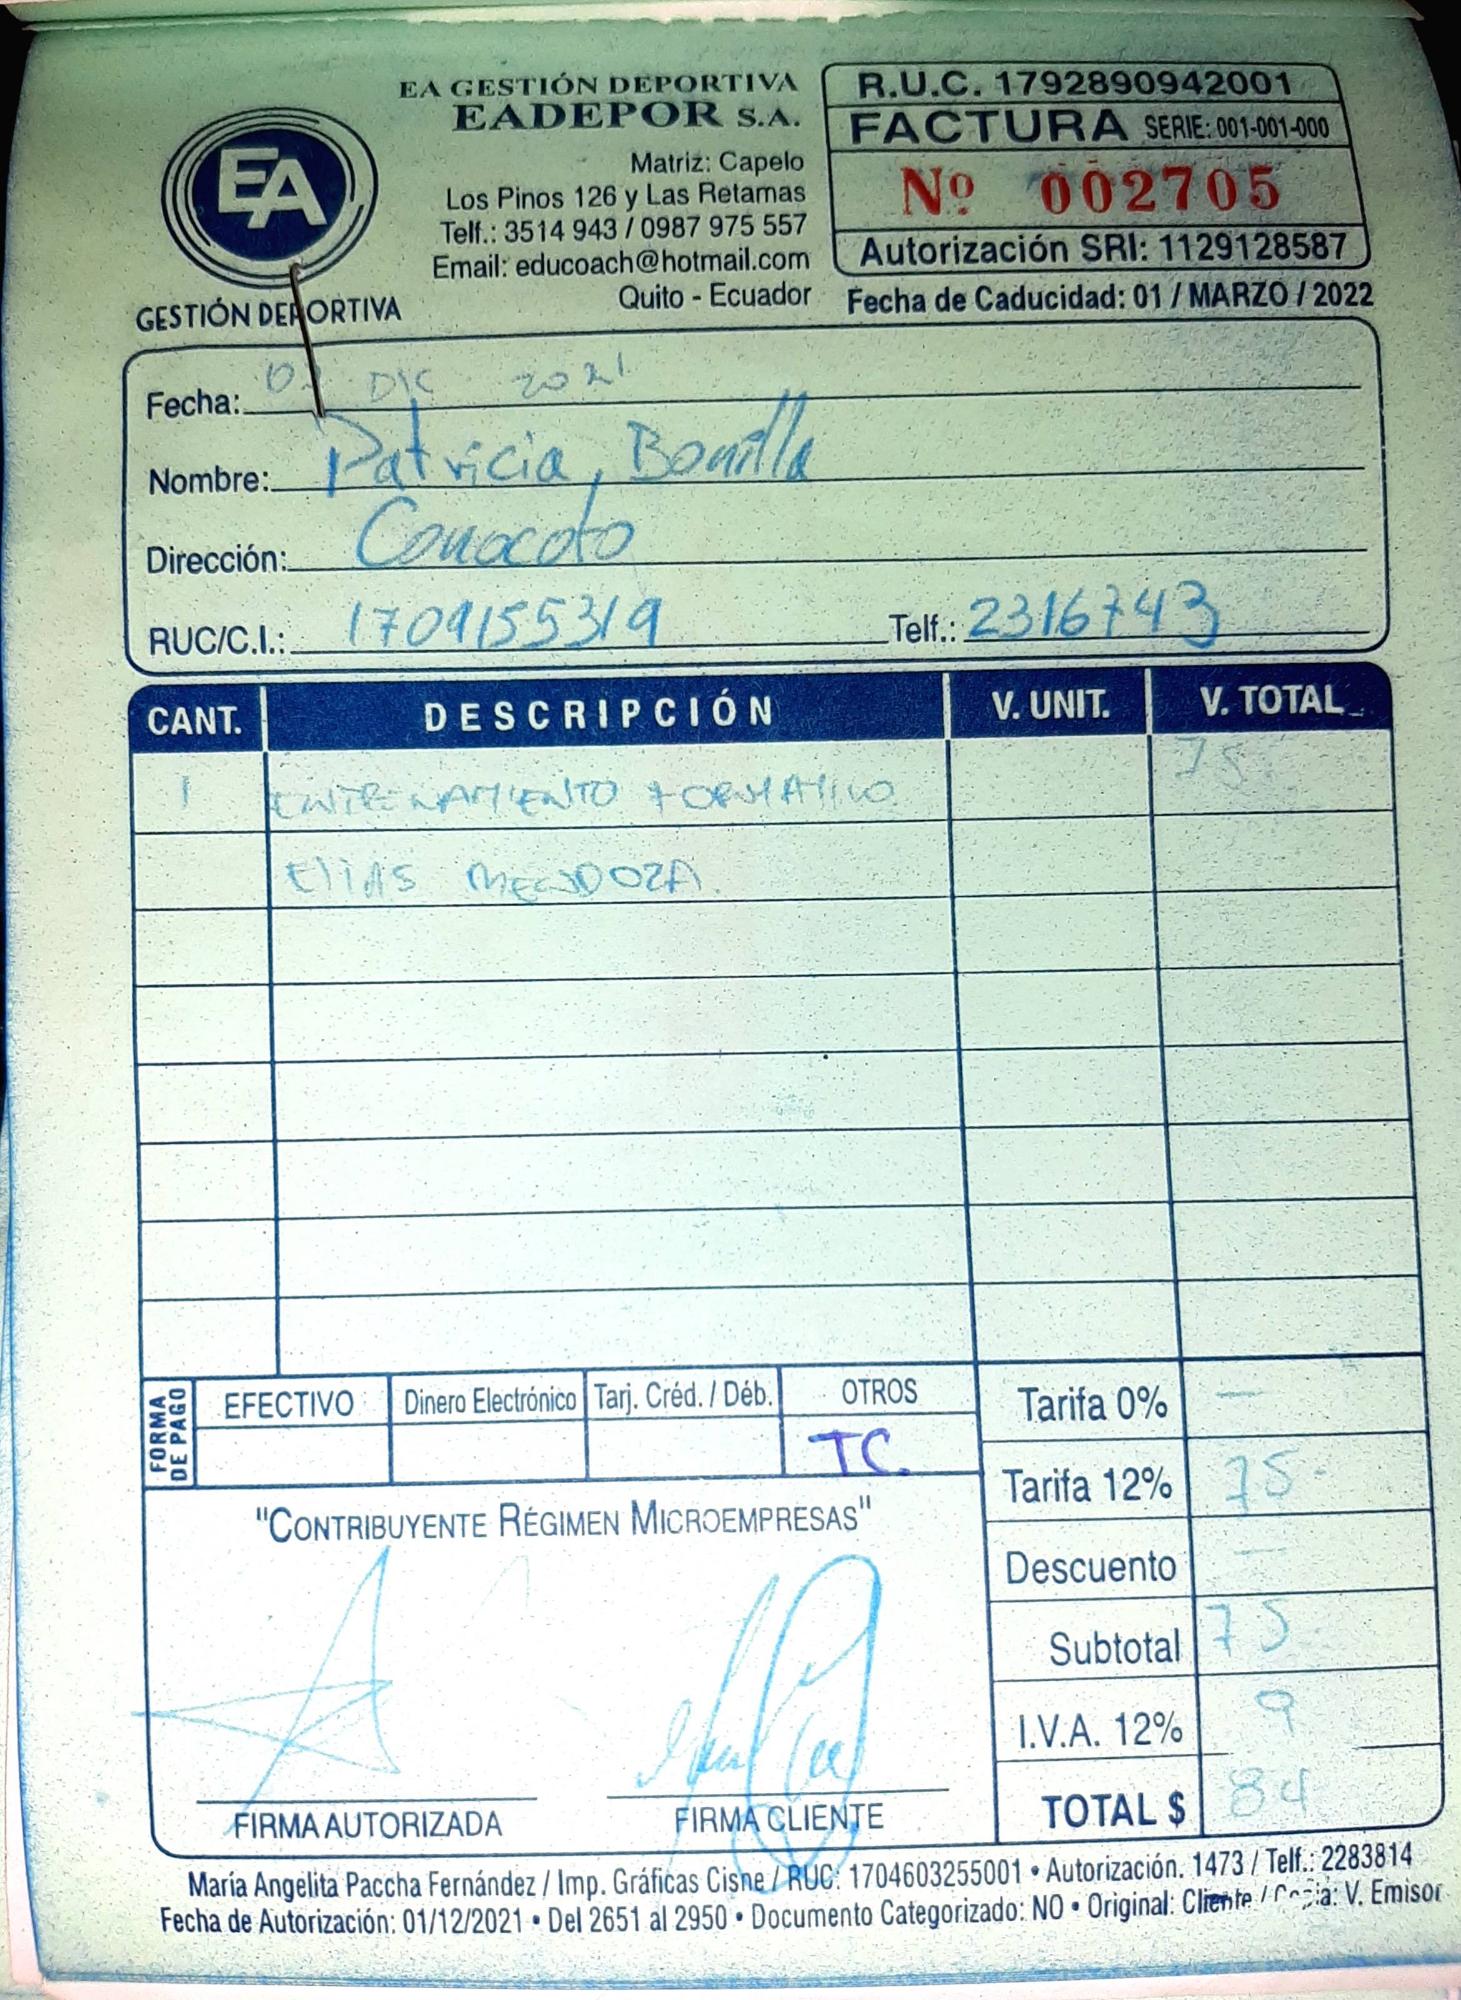 EA GESTIÓN DEPORTIVA
EADEPOR S.A.
Matriz: Capelo
Los Pinos 126 y Las Retamas
Telf.: 3514 943 / 0987 975 557
Email: educoach@hotmail.com
Quito - Ecuador
EA
GESTIÓN DEPORTIVA
R.U.C. 1792890942001
FACTURA SERIE: 001-001-000
Nº 002705
Autorización SRI: 1129128587
Fecha de Caducidad: 01 / MARZO / 2022
Fecha: DIC 2021
Nombre: Patricia Bonilla
Dirección: Conocoto
RUC/C.I.: 1709155319 Telf.: 2316743
CANT. DESCRIPCIÓN V. UNIT. V. TOTAL
1 ENTRENAMIENTO FORMATIVO 75
Elias MENDOZA
FORMA DE PAGO EFECTIVO Dinero Electrónico Tarj. Créd. / Déb. OTROS
TC.
Tarifa 0% —
Tarifa 12% 75
Descuento —
Subtotal 75
I.V.A. 12% 9
TOTAL $ 84
"CONTRIBUYENTE RÉGIMEN MICROEMPRESAS"
FIRMA AUTORIZADA FIRMA CLIENTE
María Angelita Paccha Fernández / Imp. Gráficas Cisne / RUC: 1704603255001 • Autorización. 1473 / Telf.: 2283814
Fecha de Autorización: 01/12/2021 • Del 2651 al 2950 • Documento Categorizado: NO • Original: Cliente / Copia: V. Emisor